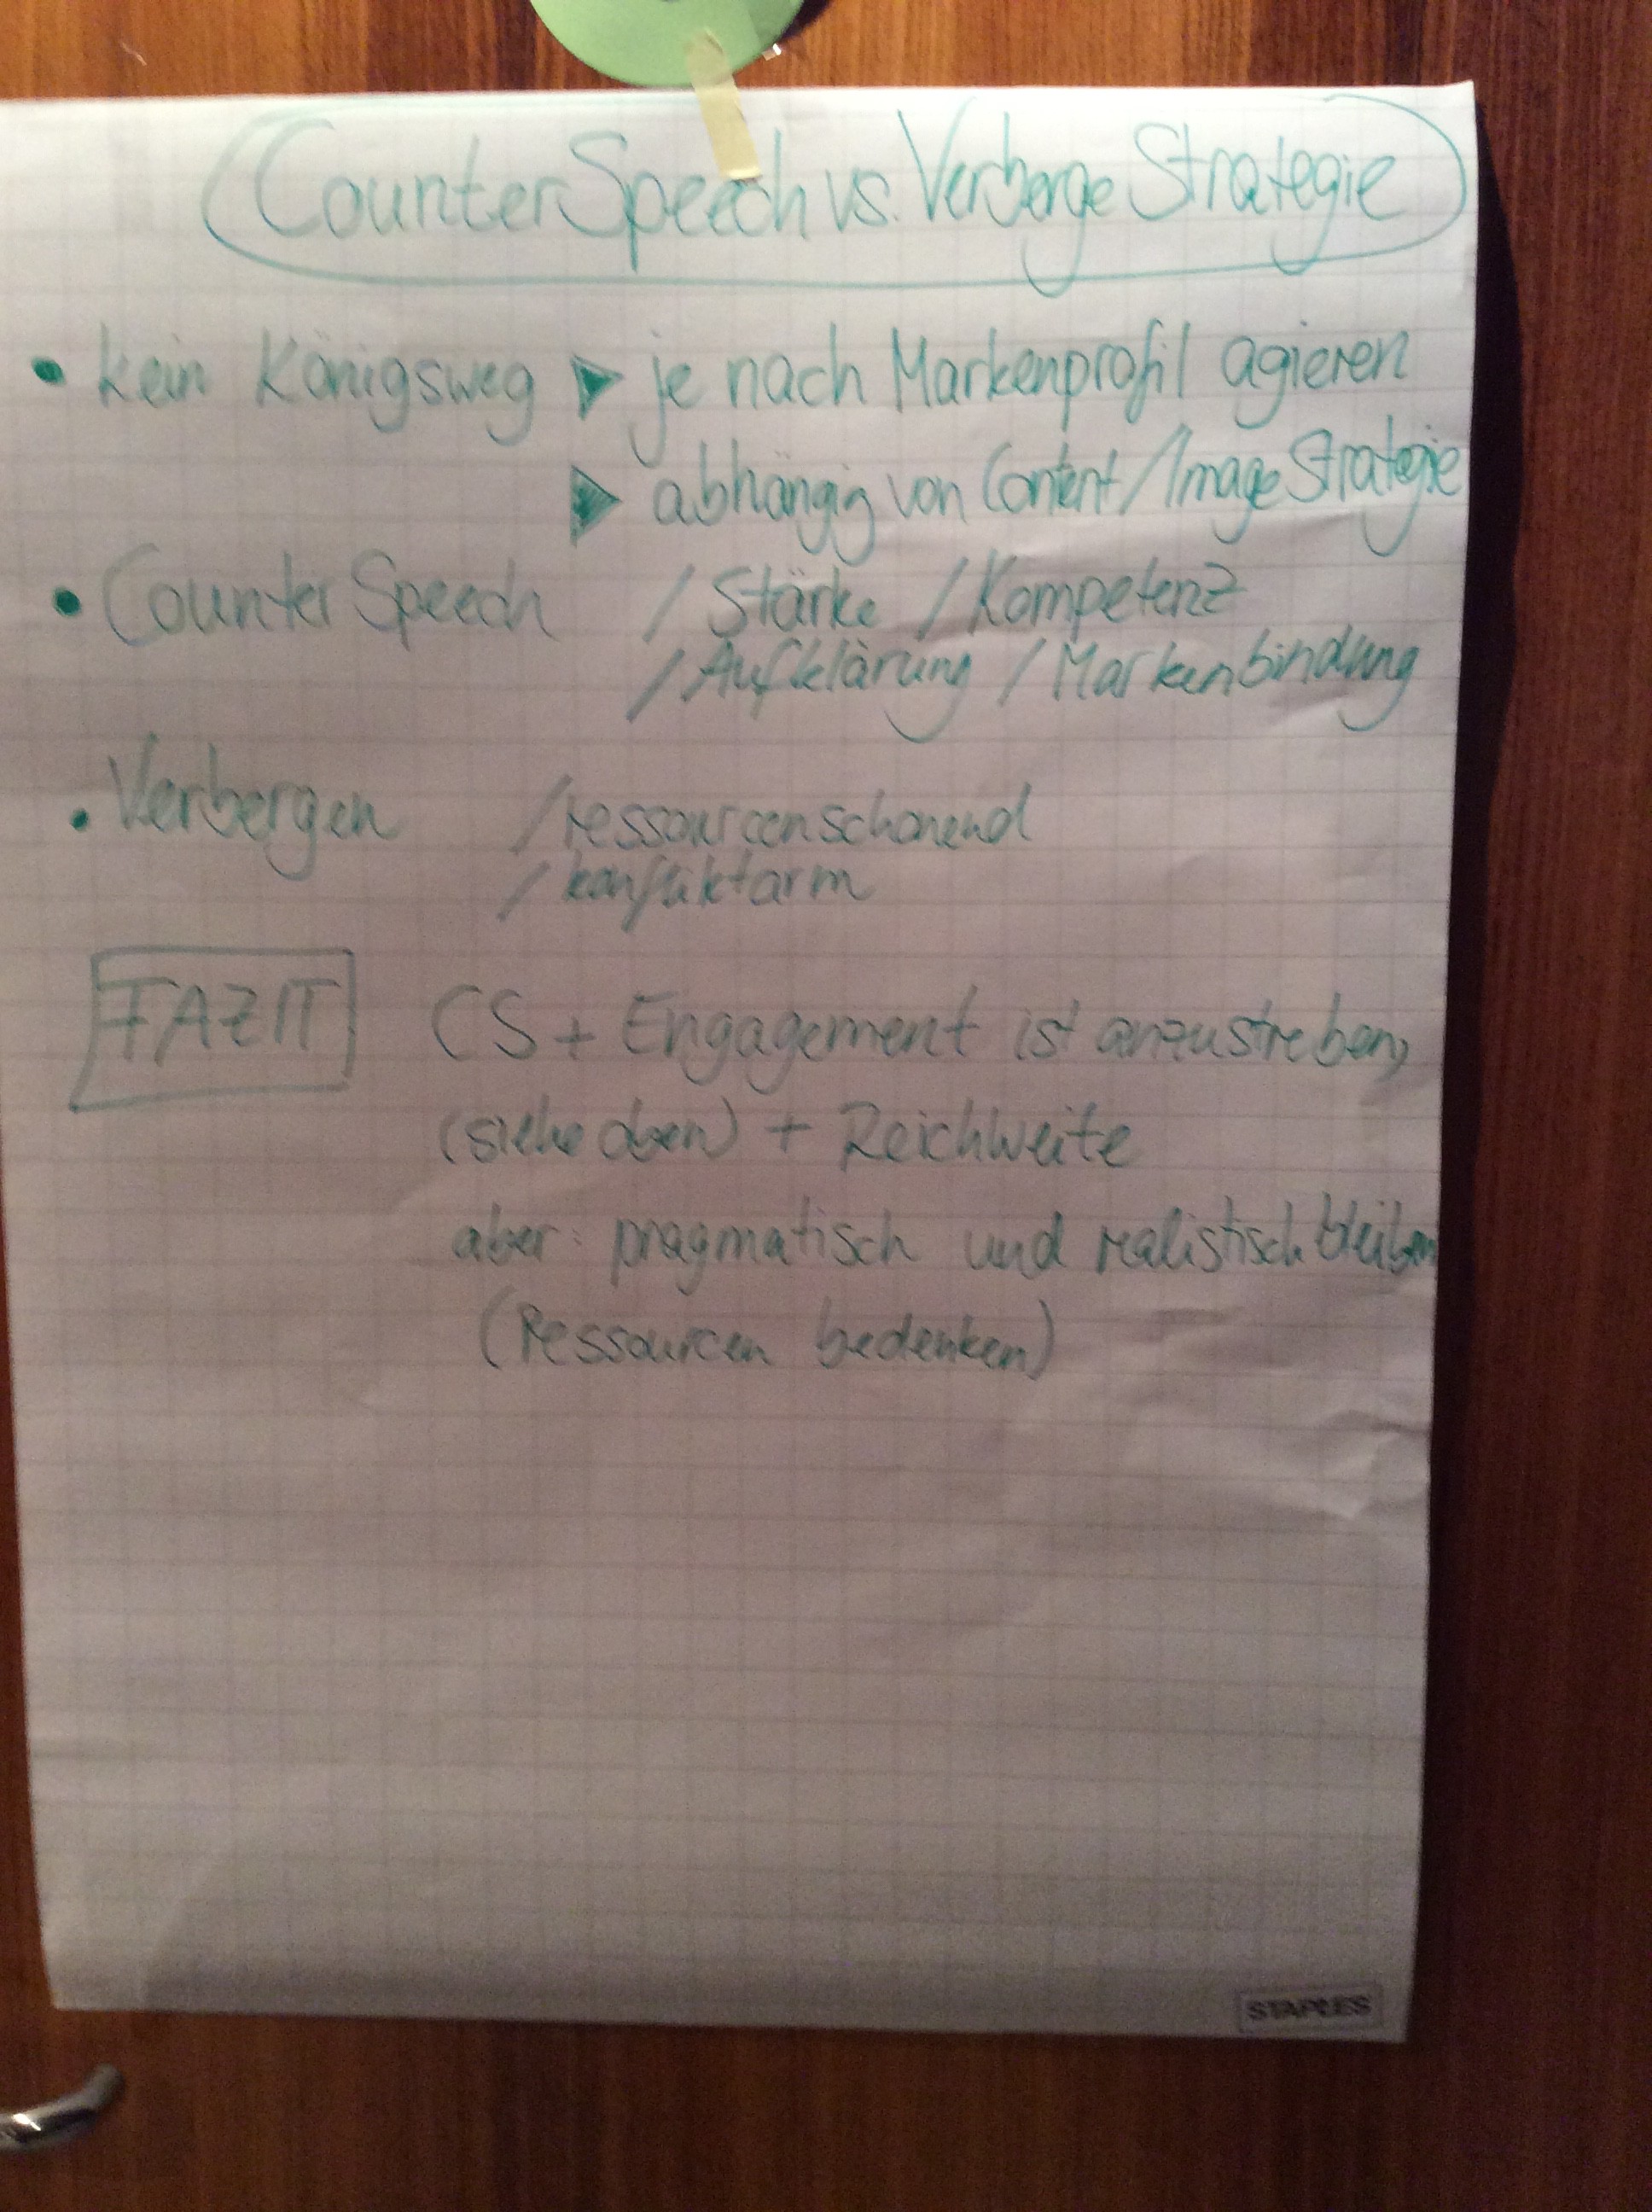 Counter Speech vs. Verberge Strategie
• kein Königsweg ▶ je nach Markenprofil agieren
▶ abhängig von Content/Image Strategie
• Counter Speech / Stärke / Kompetenz
/ Aufklärung / Markenbindung
• Verbergen / ressourcenschonend
/ konfliktarm
FAZIT CS + Engagement ist anzustreben,
(siehe oben) + Reichweite
aber: pragmatisch und realistisch bleiben
(Ressourcen bedenken)
STAPLES